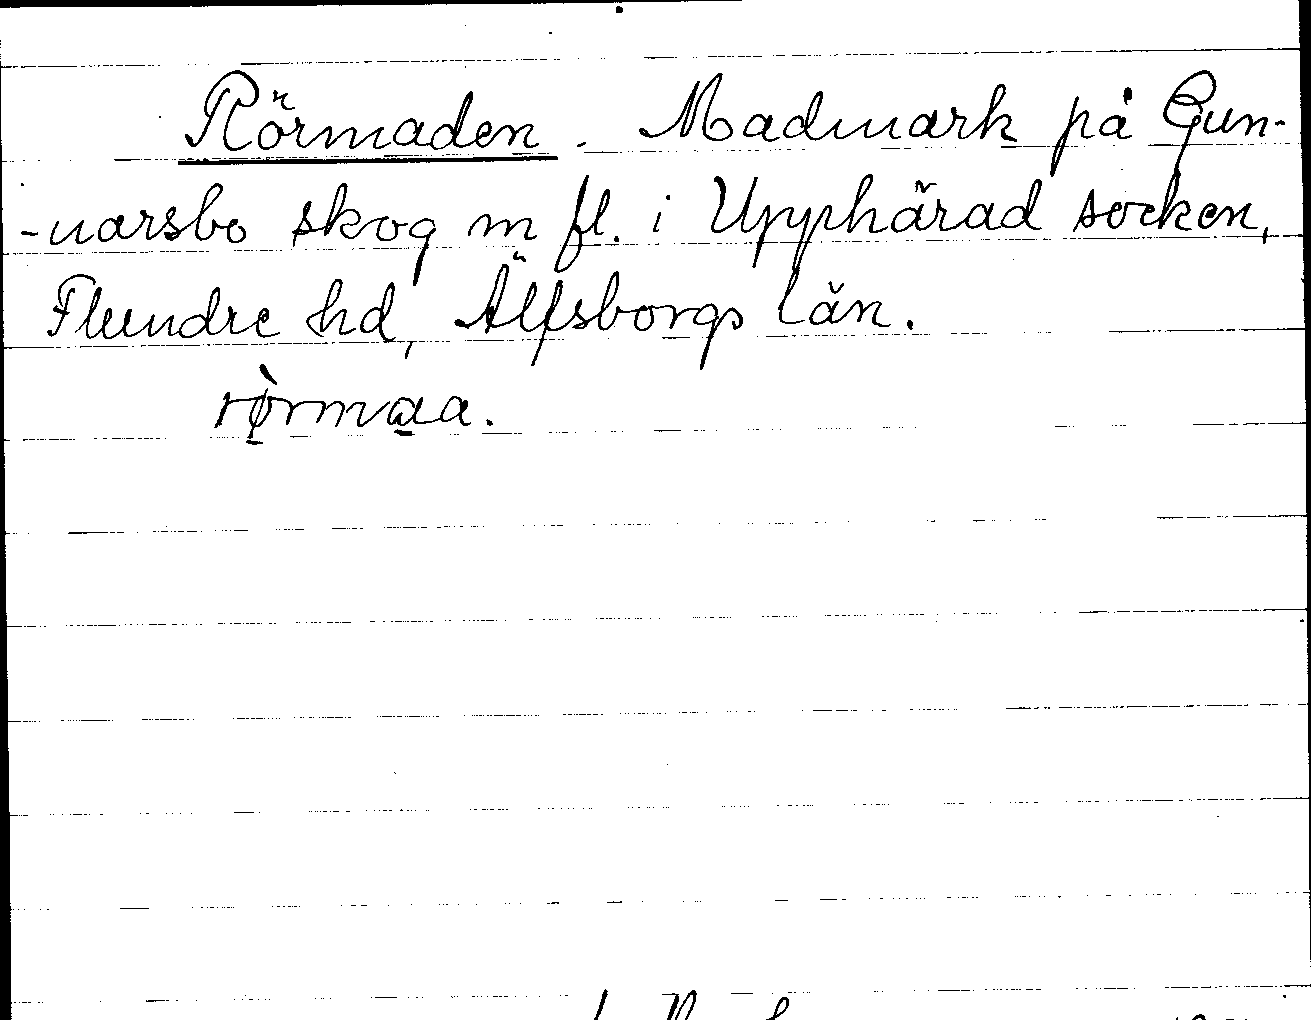 Rörmaden. Madmark på Gun-
-narsbo skog m fl. i Upphärad socken,
Flundre hd, Älfsborgs län.
rø̀rmaa.